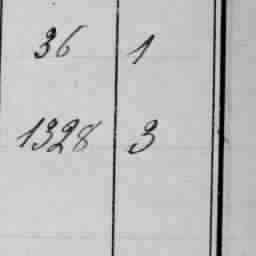 36 1
1328 3